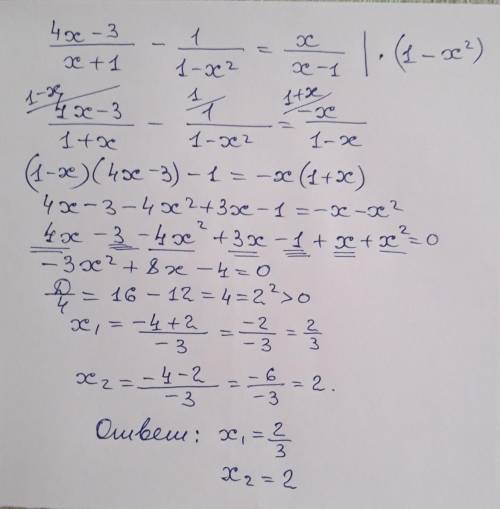 (4x - 3)/(x + 1) - 1/(1 - x²) = x/(x - 1) | · (1 - x²)
1-x 1 1+x
(4x - 3)/(1 + x) - 1/(1 - x²) = -x/(1 - x)
(1-x)(4x-3) - 1 = -x(1+x)
4x - 3 - 4x² + 3x - 1 = -x - x²
4x - 3 - 4x² + 3x - 1 + x + x² = 0
-3x² + 8x - 4 = 0
D/4 = 16 - 12 = 4 = 2² > 0
x₁ = (-4 + 2)/(-3) = (-2)/(-3) = 2/3
x₂ = (-4 - 2)/(-3) = (-6)/(-3) = 2.
Ответ: x₁ = 2/3
x₂ = 2